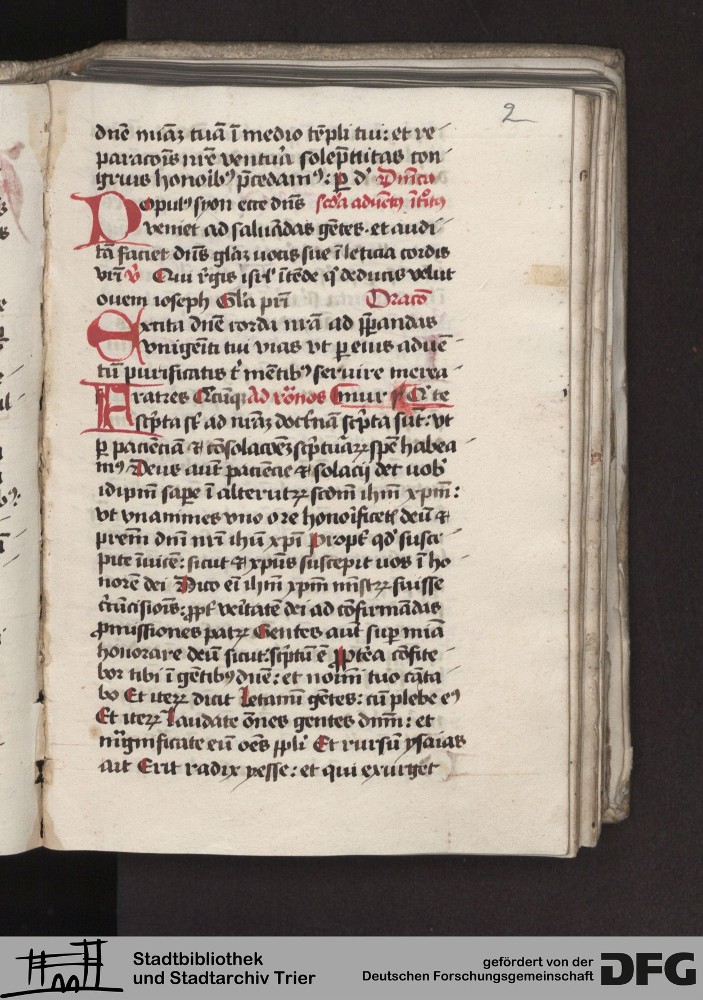 2
dnē mīaȝ tuā ī medio tēpli tui: et re
paracoīs nrē ventur̄ solēp̄ttitas con
gruis honoibꝰ p̄cedamꝰ: ꝑ d̄ Dn̄ica
Populꝰ syon ecce dn̄s scd̄a aduētꝰ ītroitꝰ
veniet ad saluādas gētes. et audi
tā faciet dn̄s gl̄aȝ uocis sue ī leticia cordis
vr̄i v̄ Qui r̄gis isrl̓ ītēde q̓ deducis velut
ouem ioseph Gl̄ia pr̄i Oracō
Excita dnē corda nr̄a ad p̄parandas
vnigenīti tui vias vt ꝑ eius aduē
tū purificatis t̓ mētibꝰ seruire merea
Fratres Qcūqꝫ ad rōnos mur Q te
scp̄ta sr̄ ad nr̄aȝ doctnā scp̄ta sūt: vt
ꝑ pacienciā ⁊ cōsolacōeȝ scp̄turaꝝ spē habea
mꝰ Deus aut̄ paciencie ⁊ solacij det uob̓
idipm̄ sape ī alterutꝝ scdm̄ ihm̄ xpm̄:
vt vnanimes vno ore honoificetꝭ deū ⁊
prēm dn̄i nr̄i ihū xp̄i Propt̓ qd̓ susci
pite īuicē: sicut ⁊ xpūs suscepit uos ī ho
norē dei Dico eī ihm̄ xpm̄ mīstꝝ fuisse
cr̄cūcisiōis: ꝓpt̓ veītatē dei ad cōfirmādas
ꝓmissiones patꝝ Gentes aūt suꝑ mīa
honorare deū sicut: scp̄tū ē Ꝓptēa cōfite
bor tibi ī gētibꝰ dnē: et noīni tuo cāta
bo Et iteꝝ dicit letaminī gētes: cū plebe eꝰ
Et iteꝝ laudate ōnes gentes dnm̄: et
māgnificate eū oēs ppl̄i Et rursū ysaias
ait Erit radix yesse: et qui exurget
Stadtbibliothek
und Stadtarchiv Trier
gefördert von der
Deutschen Forschungsgemeinschaft
DFG